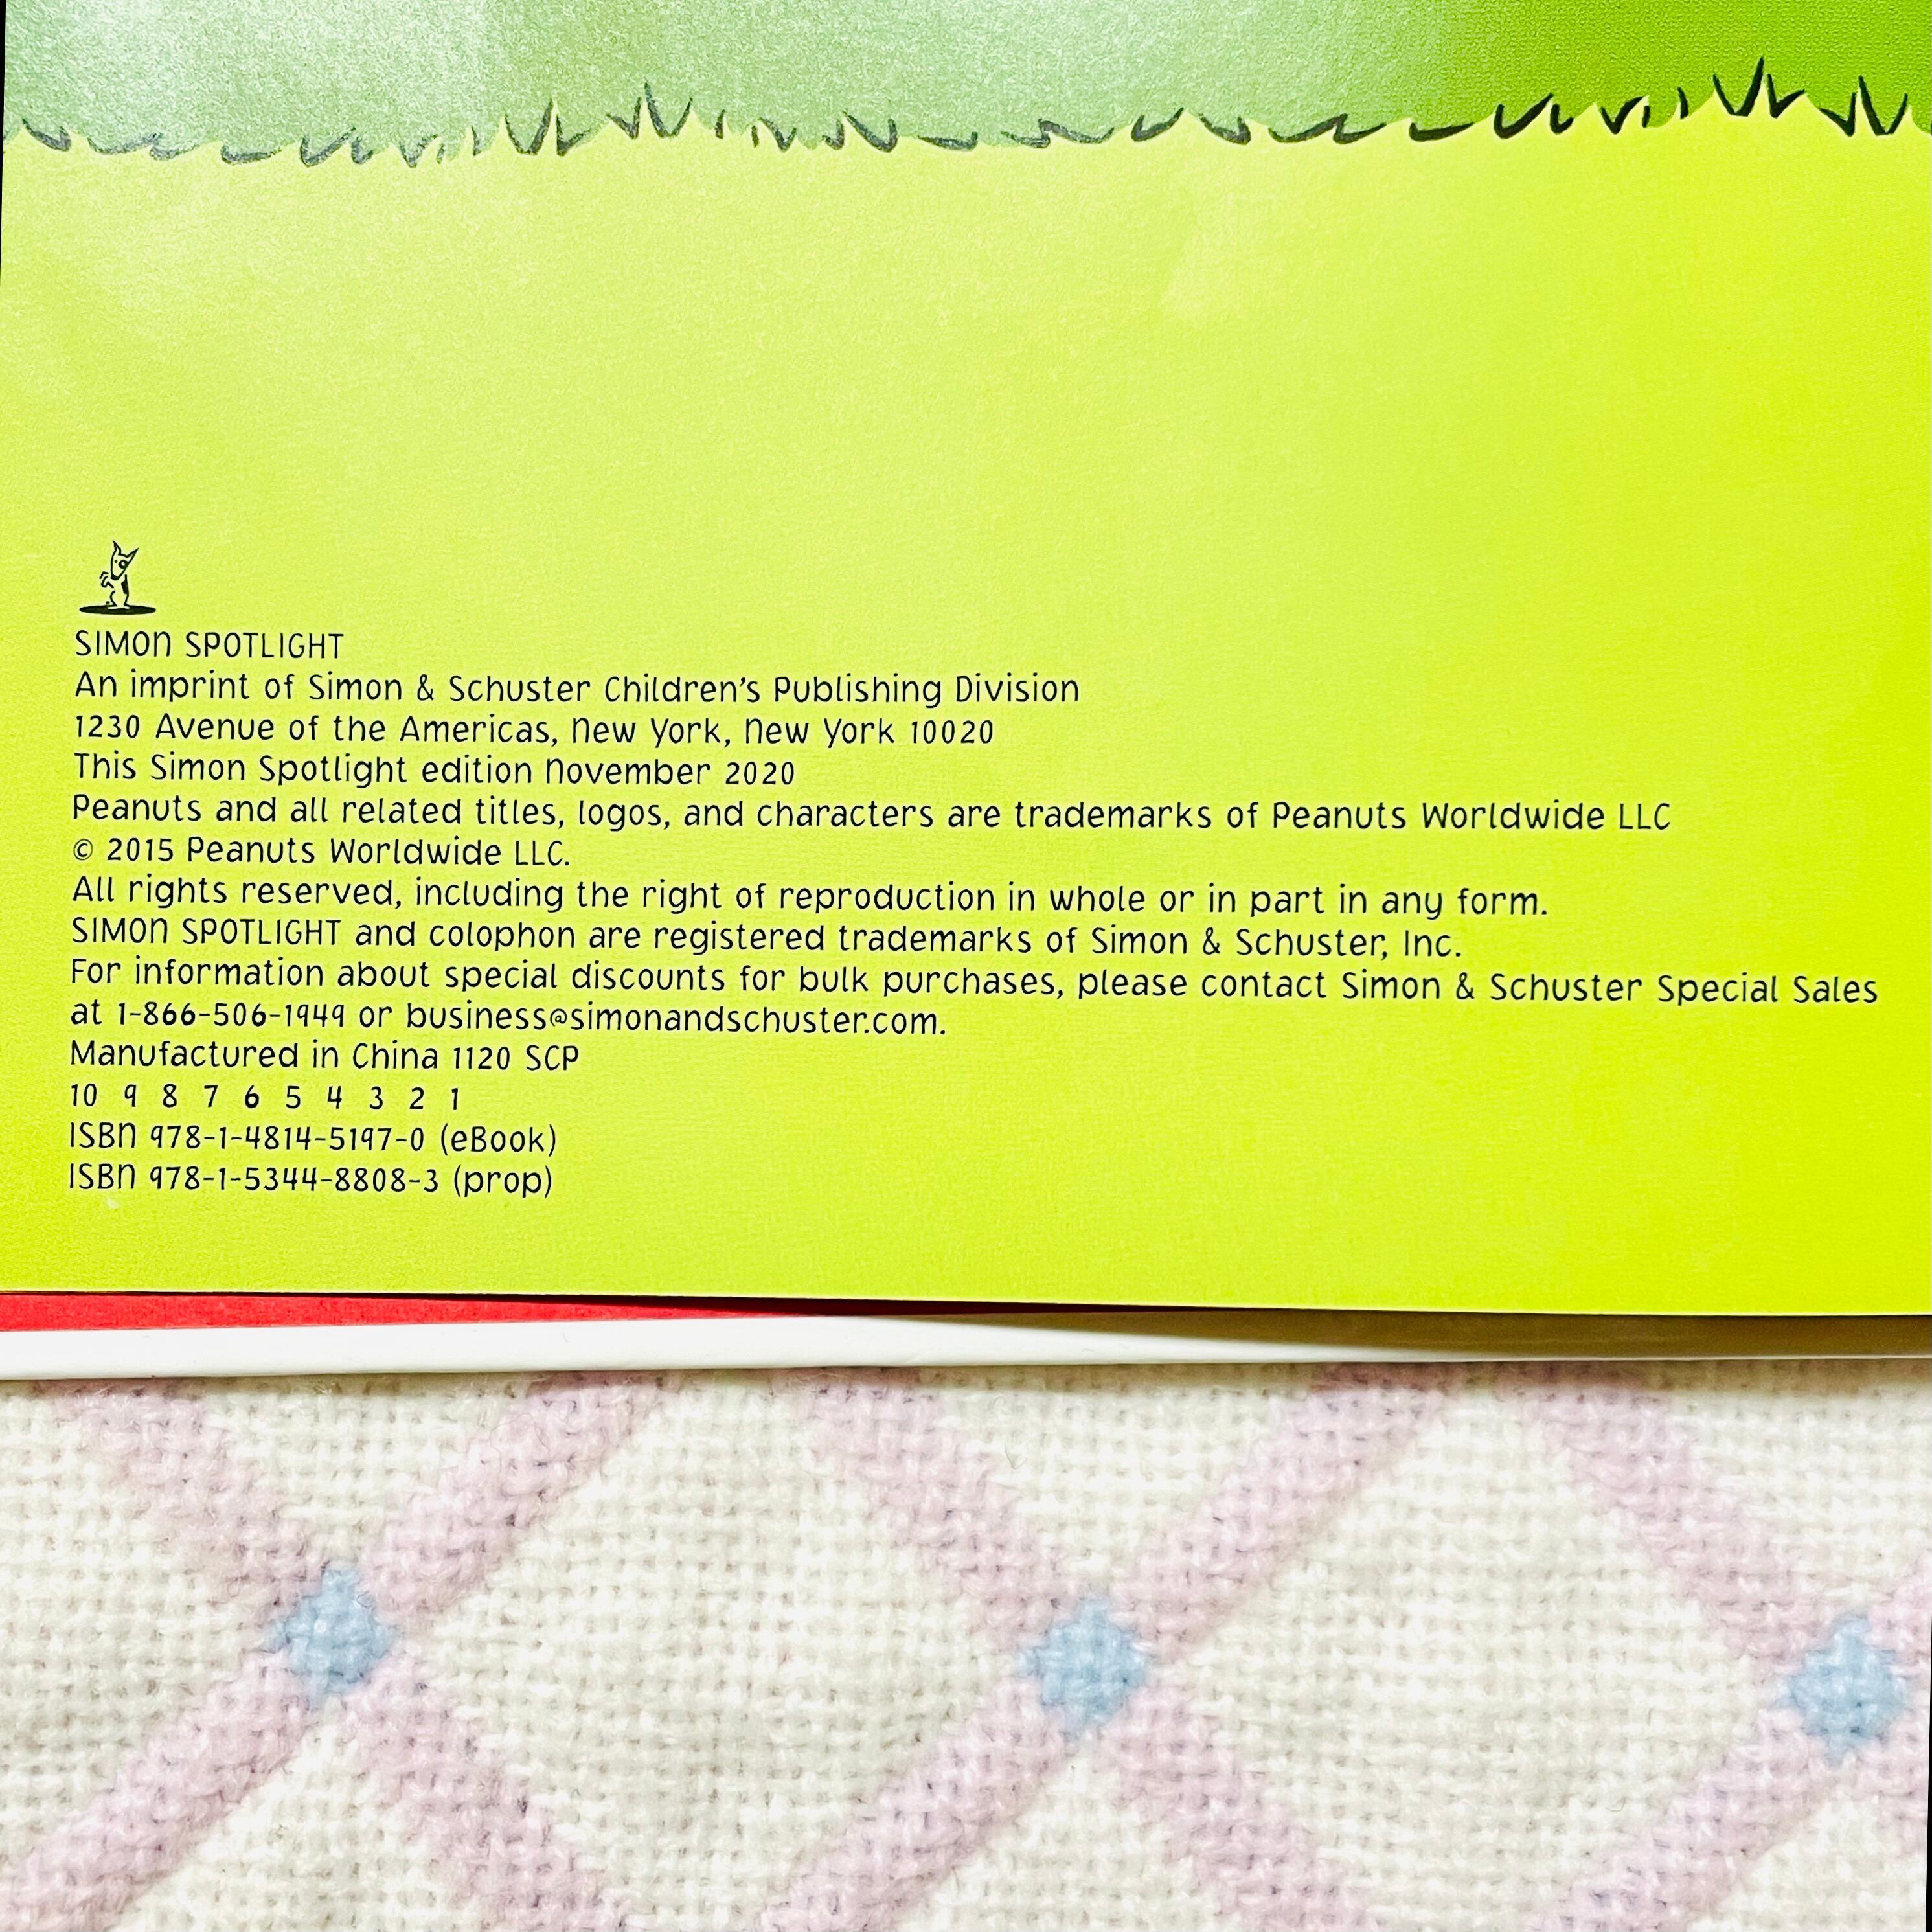 SIMON SPOTLIGHT
An imprint of Simon & Schuster Children's Publishing Division
1230 Avenue of the Americas, New York, New York 10020
This Simon Spotlight edition November 2020
Peanuts and all related titles, logos, and characters are trademarks of Peanuts Worldwide LLC
© 2015 Peanuts Worldwide LLC.
All rights reserved, including the right of reproduction in whole or in part in any form.
SIMON SPOTLIGHT and colophon are registered trademarks of Simon & Schuster, Inc.
For information about special discounts for bulk purchases, please contact Simon & Schuster Special Sales
at 1-866-506-1949 or business@simonandschuster.com.
Manufactured in China 1120 SCP
10 9 8 7 6 5 4 3 2 1
ISBN 978-1-4814-5197-0 (eBook)
ISBN 978-1-5344-8808-3 (prop)